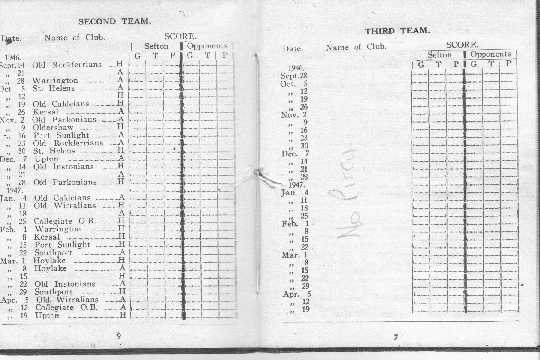 SECOND TEAM.
Date. Name of Club. SCORE.
Sefton Opponents
G T P G T P
1946.
Sept. 14 Old Rockferrians H
„ 21 A
„ 28 Warrington H
Oct. 5 St. Helens A
„ 12 H
„ 19 Old Caldeians H
„ 26 Kersal A
Nov. 2 Old Parkonians A
„ 9 Oldershaw H
„ 16 Port Sunlight A
„ 23 Old Rockferrians A
„ 30 St. Helens H
Dec. 7 Upton A
„ 14 Old Instonians H
„ 21 A
„ 28 Old Parkonians H
1947.
Jan. 4 Old Caldeians A
„ 11 Old Wirralians H
„ 18 A
„ 25 Collegiate O.B. H
Feb. 1 Warrington
„ 8 Kersal H
„ 15 Port Sunlight H
„ 22 Southport A
Mar. 1 Hoylake H
„ 8 Hoylake A
„ 15 H
„ 22 Old Instonians A
„ 29 Southport H
Apr. 5 Old Wirralians A
„ 12 Collegiate O.B. A
„ 19 Upton H
THIRD TEAM.
Date. Name of Club. SCORE.
Sefton Opponents
G T P G T P
1946.
Sept. 28
Oct. 5
„ 12
„ 19
„ 26
Nov. 2
„ 9
„ 16
„ 23
„ 30
Dec. 7
„ 14
„ 21
„ 28
1947.
Jan. 4
„ 11
„ 18
„ 25
Feb. 1
„ 8
„ 15
„ 22
Mar. 1
„ 8
„ 15
„ 22
„ 29
Apr. 5
„ 12
„ 19
No
7